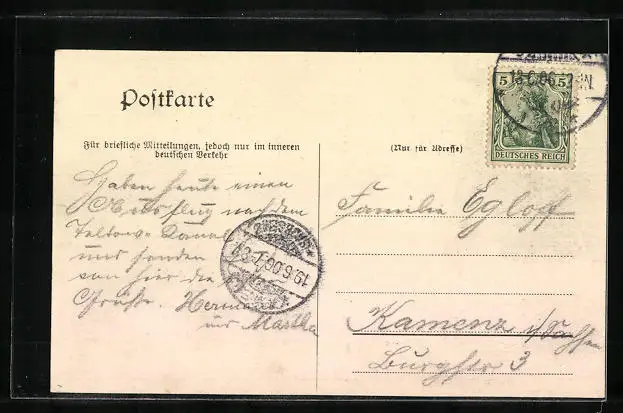 Postkarte
Für briefliche Mitteilungen, jedoch nur im inneren
deutschen Verkehr
(Nur für Adresse)
5 5
DEUTSCHES REICH
18.6.06
Haben heute einen
Ausflug nach dem
Teltow-Kanal
und senden
von hier die
Grüße. Hermann
und Martha
19.6.06.7-8V
Familie Egloff
Kamenz i/Sachsen
Burgstr 3